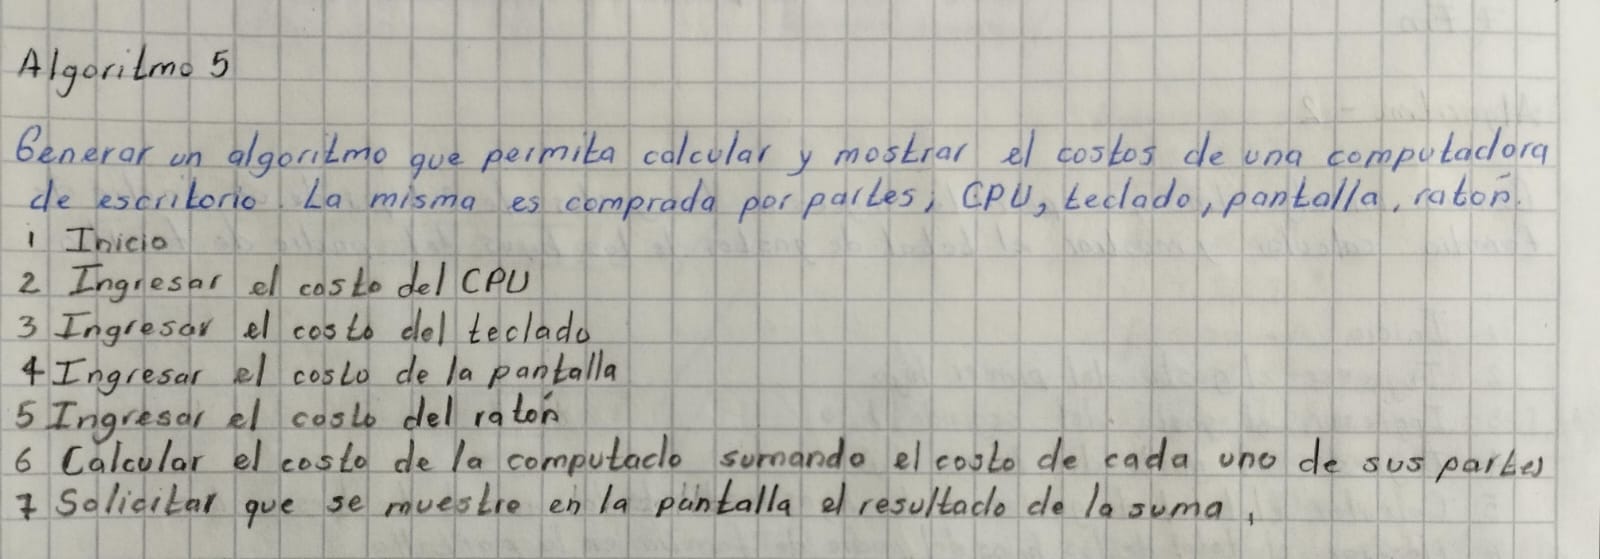 Algoritmo 5
Generar un algoritmo que permita calcular y mostrar el costos de una computadora
de escritorio. La misma es comprada por partes; CPU, teclado, pantalla, ratón.
1 Inicio
2 Ingresar el costo del CPU
3 Ingresar el costo del teclado
4 Ingresar el costo de la pantalla
5 Ingresar el costo del ratón
6 Calcular el costo de la computado sumando el costo de cada uno de sus partes
7 Solicitar que se muestre en la pantalla el resultado de la suma,